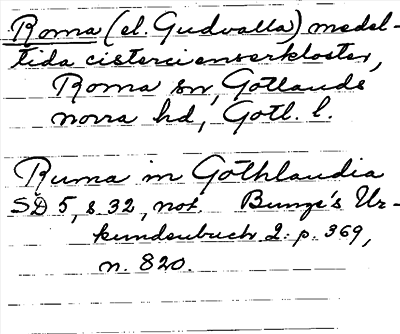 Roma (el. Gudvalla) medel-
tida cistercienserkloster,
Roma sn, Gotlands
norra hd, Gotl. l.
Ruma in Gothlandia
SD 5, s. 32, not. Bunge's Ur-
kundenbuch 2: p. 369,
n. 820.